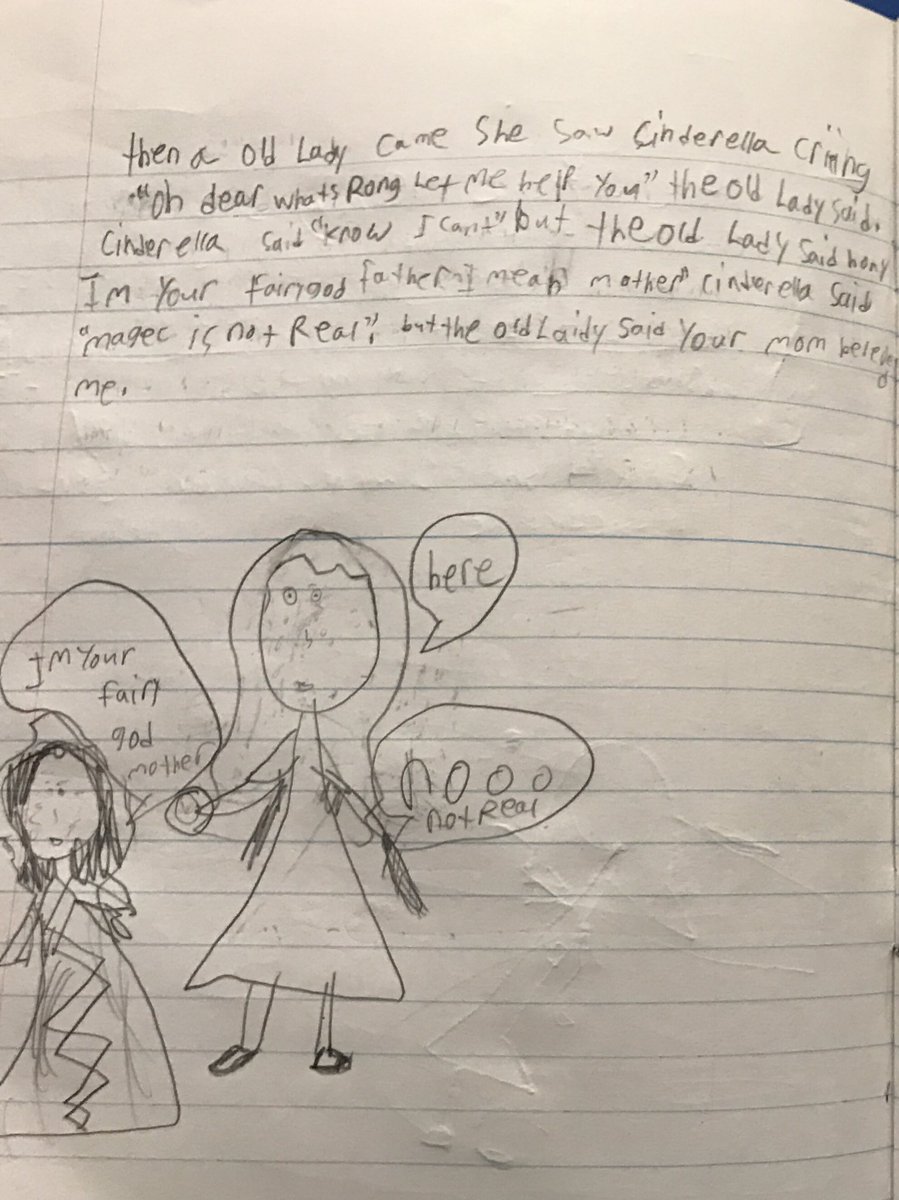 then a old Lady came She Saw Cinderella criing
"Oh dear whats Rong Let me help You" the old Lady said.
Cinderella said "know I can't" but the old Lady said hony
Im Your fairigod father I mean mother" Cinderella said
"magec is not Real", but the old Laidy said Your mom beleved
me.
here
Im Your
fairy
god
mother
nooo
not Real